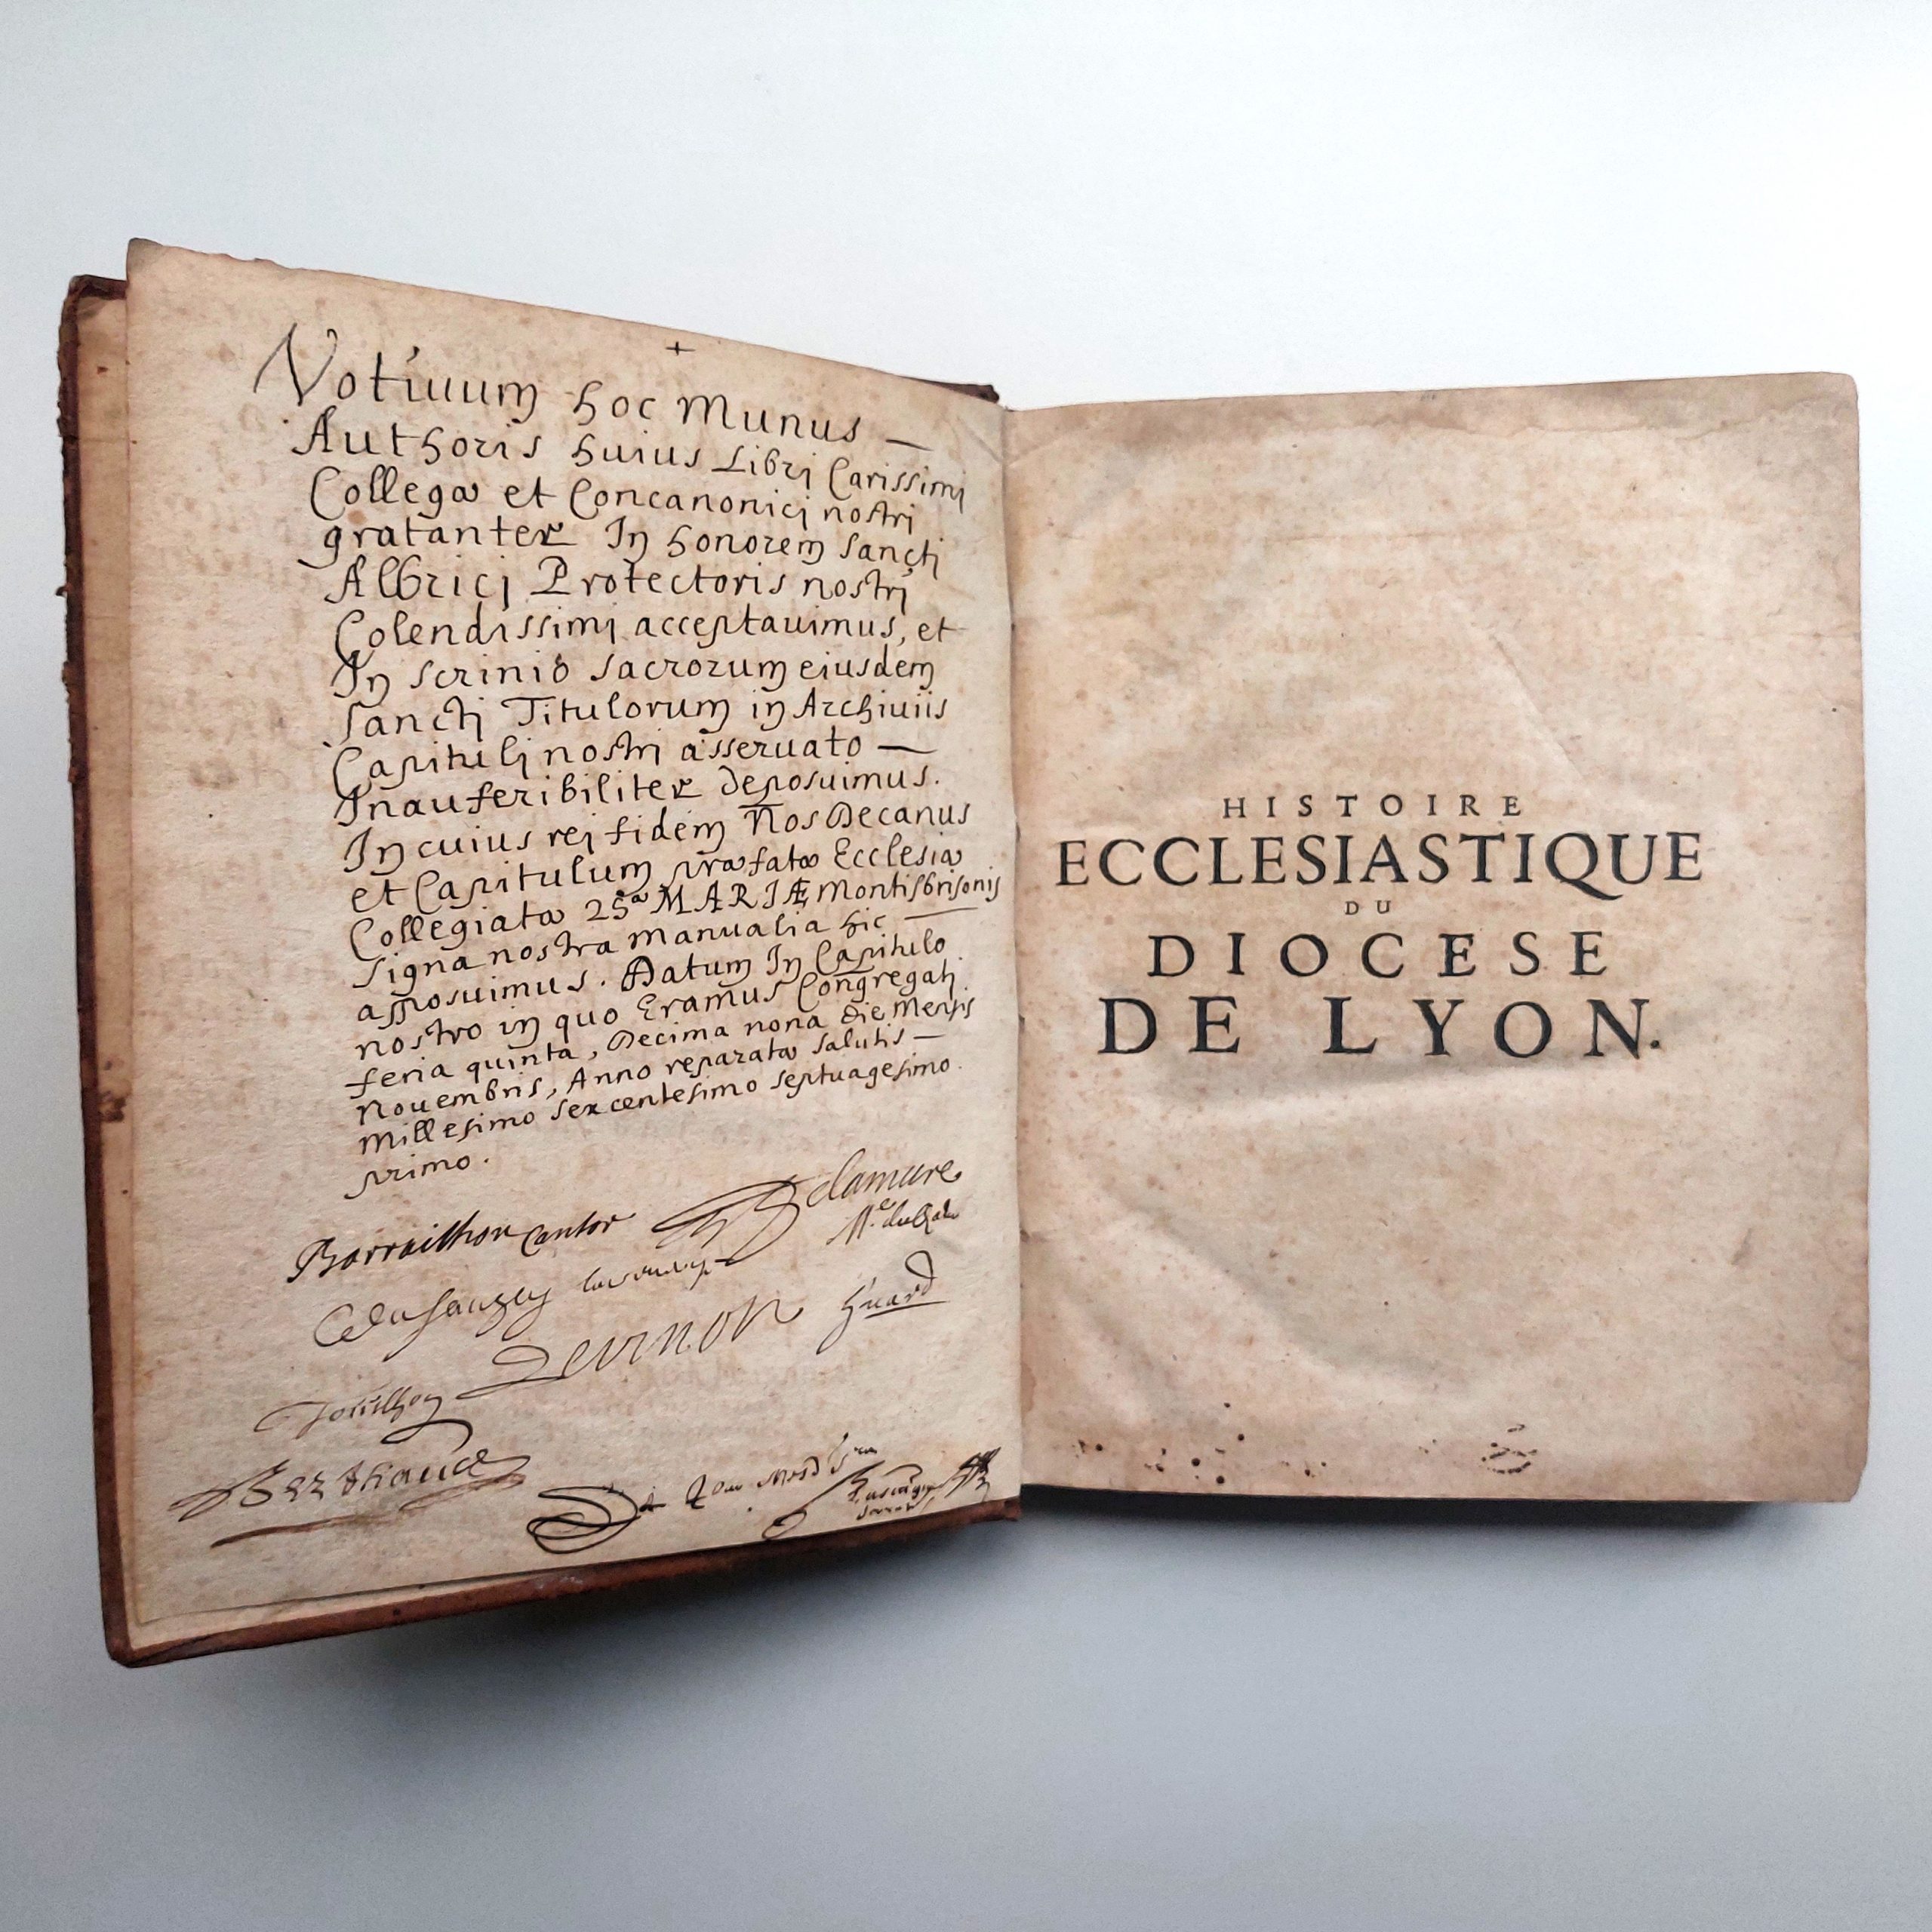 +
Votiuum hoc munus —
Authoris huius Libri Carissimi
Collegæ et Concanonici nostri
gratanter In honorem Sancti
Albrici Protectoris nostri
Colendissimi acceptauimus, et
In scrinio sacrorum eiusdem
Sancti Titulorum in Archiuiis
Capituli nostri asseruato —
Inauferibiliter deposuimus.
In cuius rei fidem Nos Decanus
et Capitulum præfatæ Ecclesiæ
Collegiatæ MARIÆ Montisbrisonis
signa nostra manualia hic —
apposuimus. Datum In Capitulo
nostro in quo Eramus Congregati
feria quinta, Decima nona die Mensis
Nouembris, Anno reparatæ salutis —
Millesimo sexcentesimo septuagesimo
primo.
Barrailhon Cantor Delamure
Dernon huard
Berthaud
HISTOIRE
ECCLESIASTIQUE
DU
DIOCESE
DE LYON.